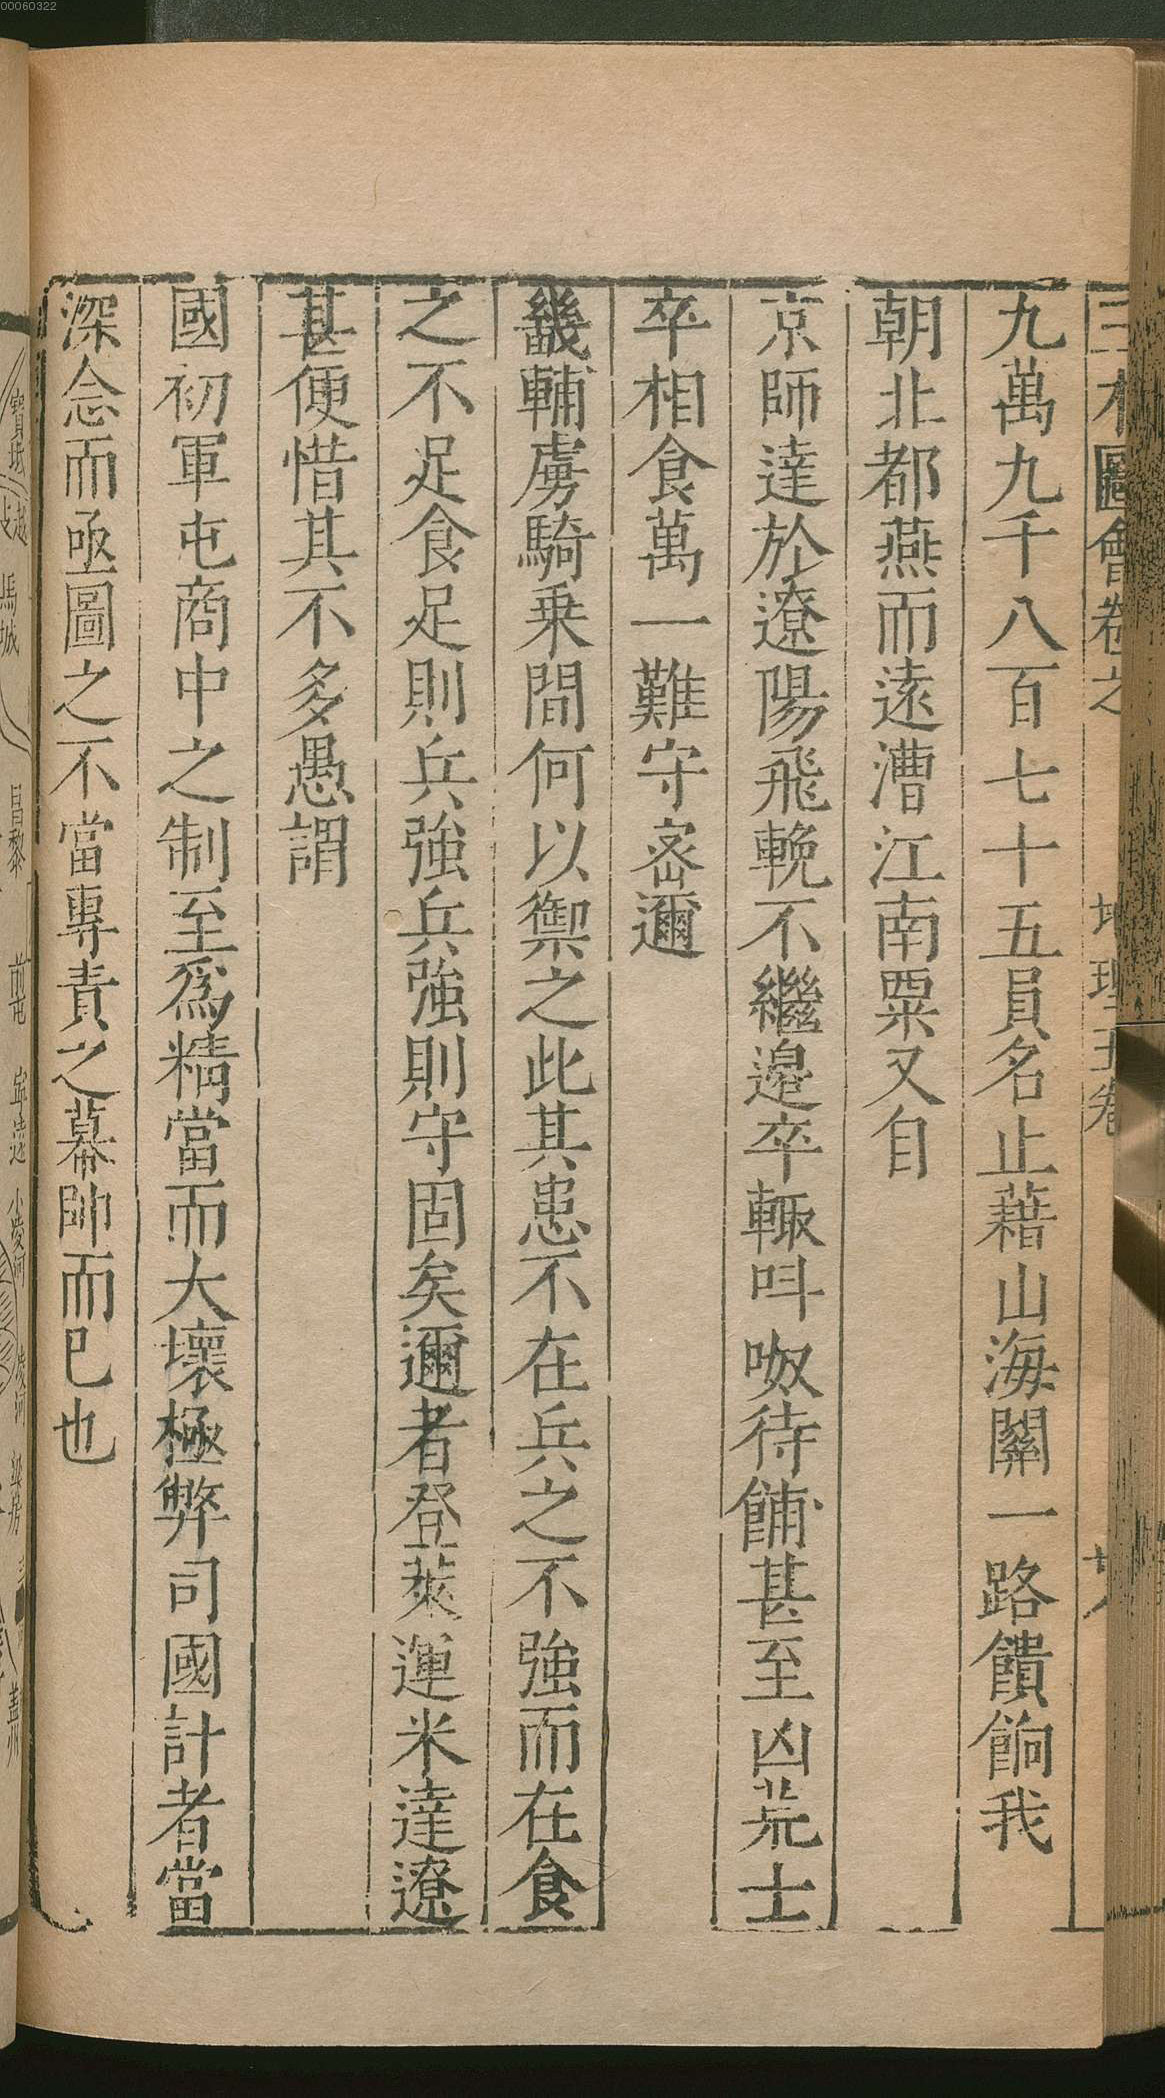 00060322
三才圖會卷之 地理五卷 廿八
九萬九千八百七十五員名止藉山海關一路饋餉我
朝北都燕而遠漕江南粟又自
京師達於遼陽飛輓不繼邉卒輙呌呶待餔甚至凶荒士
卒相食萬一難守宻邇
畿輔虜騎乗間何以禦之此其患不在兵之不強而在食
之不足食足則兵強兵強則守固矣邇者登萊運米達遼
甚便惜其不多愚謂
國初軍屯商中之制至爲精當而大壞極弊司國計者當
深念而亟圖之不當專責之幕帥而已也
寶坻
昌黎
前屯
寧遠
小凌河